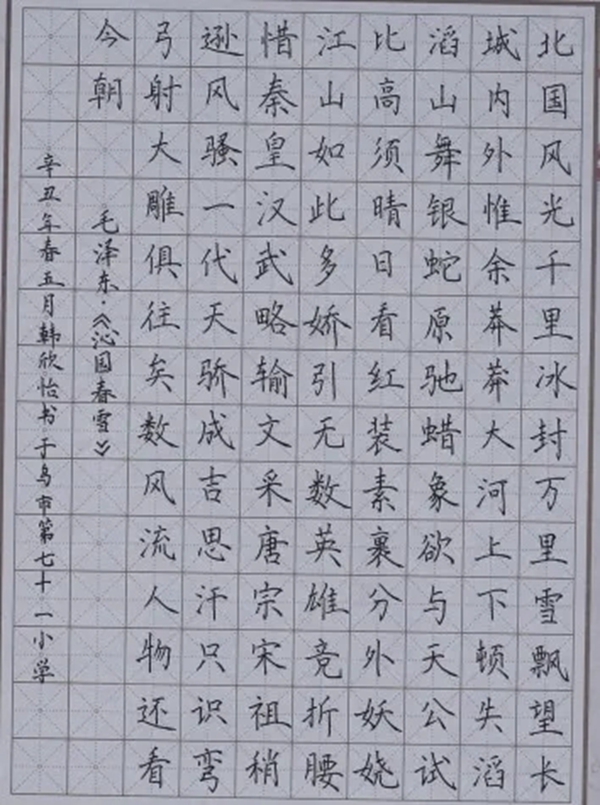 北国风光千里冰封万里雪飘望长
城内外惟余莽莽大河上下顿失滔
滔山舞银蛇原驰蜡象欲与天公试
比高须晴日看红装素裹分外妖娆
江山如此多娇引无数英雄竞折腰
惜秦皇汉武略输文采唐宗宋祖稍
逊风骚一代天骄成吉思汗只识弯
弓射大雕俱往矣数风流人物还看
今朝
毛泽东·《沁园春雪》
辛丑年春五月韩欣怡书于乌市第七十一小学